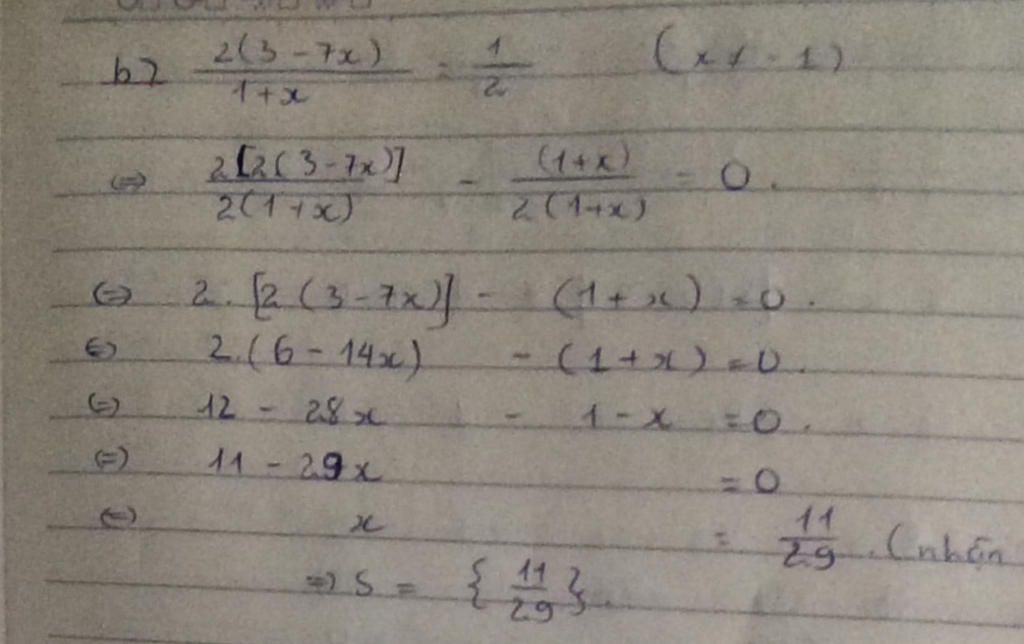 b) \frac{2(3-7x)}{1+x} = \frac{1}{2} (x ≠ -1)
⇔ \frac{2[2(3-7x)]}{2(1+x)} - \frac{(1+x)}{2(1+x)} = 0.
⇔ 2.[2(3-7x)] - (1+x) = 0.
⇔ 2.(6-14x) - (1+x) = 0.
⇔ 12 - 28x - 1 - x = 0.
⇔ 11 - 29x = 0
⇔ x = \frac{11}{29}. (nhận
⇒ S = {\frac{11}{29}}.